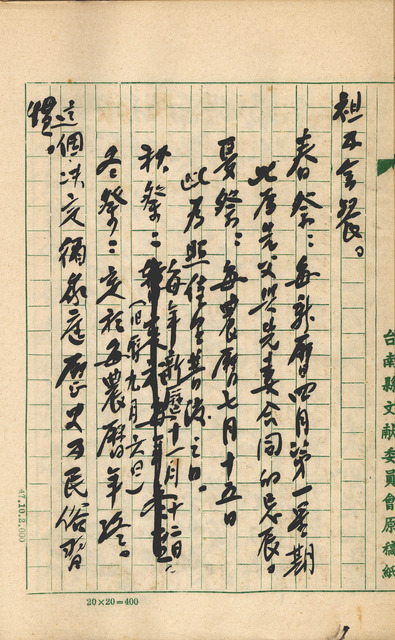 祖及会餐。
春祭：每新曆四月第一星期
此為先父與先妻合同的忌辰。
夏祭：每農曆七月十五日
此為照往年普渡之日。
秋祭：每年新曆十一月十二日
(旧曆九月六日)
冬祭：定於每農曆年終。
這個決定循家庭歷史及民俗習
慣。
台南縣文献委員會原稿紙
47.10.2,000
20×20=400